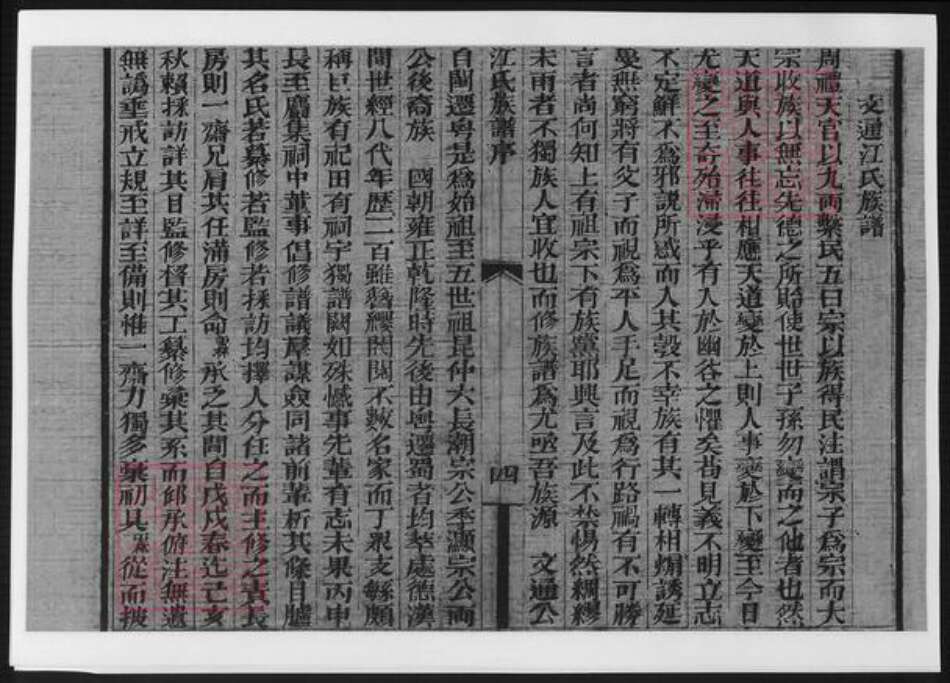 文通江氏族譜
周禮天官以九兩繫民五曰宗以族得民注謂宗子為宗而大
宗收族以無忘先德之所貽使世世子孫勿變而之他者也然
天道與人事往往相應天道變於上則人事變於下變至今日
尤變之至奇殆浸浸乎有入於幽谷之懼矣茍見義不明立志
不定鮮不為邪說所惑而入其彀不幸族有其一轉相煽誘延
蔓無窮將有父子而視為平人手足而視為行路禍有不可勝
言者尚何知上有祖宗下有族黨耶興言及此不禁惕然綢繆
未雨者不獨族人宜收也而修族譜為尤亟吾族源 文通公
江氏族譜序
四
自閩遷粵是為始祖至五世祖昆仲六長潮宗公季灝宗公兩
公後裔族 國朝雍正乾隆時先後由粵遷蜀者均萃處德漢
間世經八代年歷二百雖簪纓閥閱不數名家而丁眾支繁頗
稱巨族有祀田有祠宇獨譜闕如殊憾事先輩有志未果丙申
長至屬集祠中董事倡修譜議羣謀僉同諸前輩析其條目臚
其名氏若纂修若監修若採訪均擇人分任之而主修之責長
房則一齋兄肩其任滿房則命 承之其間自戊戌春迄己亥
秋賴採訪詳其目監修督其工纂修彙其系而邱承俯注無遺
無譌垂戒立規至詳至備則惟一齋力獨多彙初具 從而披